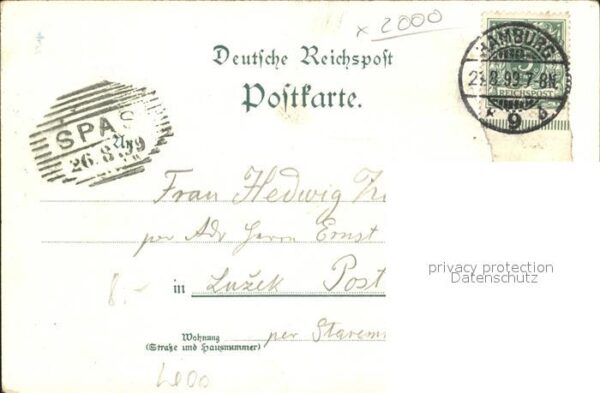 x 2000
Deutsche Reichspost
Postkarte.
HAMBURG
9
REICHSPOST
SPAS
26.8.99
Frau Hedwig
per Adr Herrn Ernst
in Lužek Post
Wohnung
(Straße und Hausnummer)
per Starem
privacy protection
Datenschutz